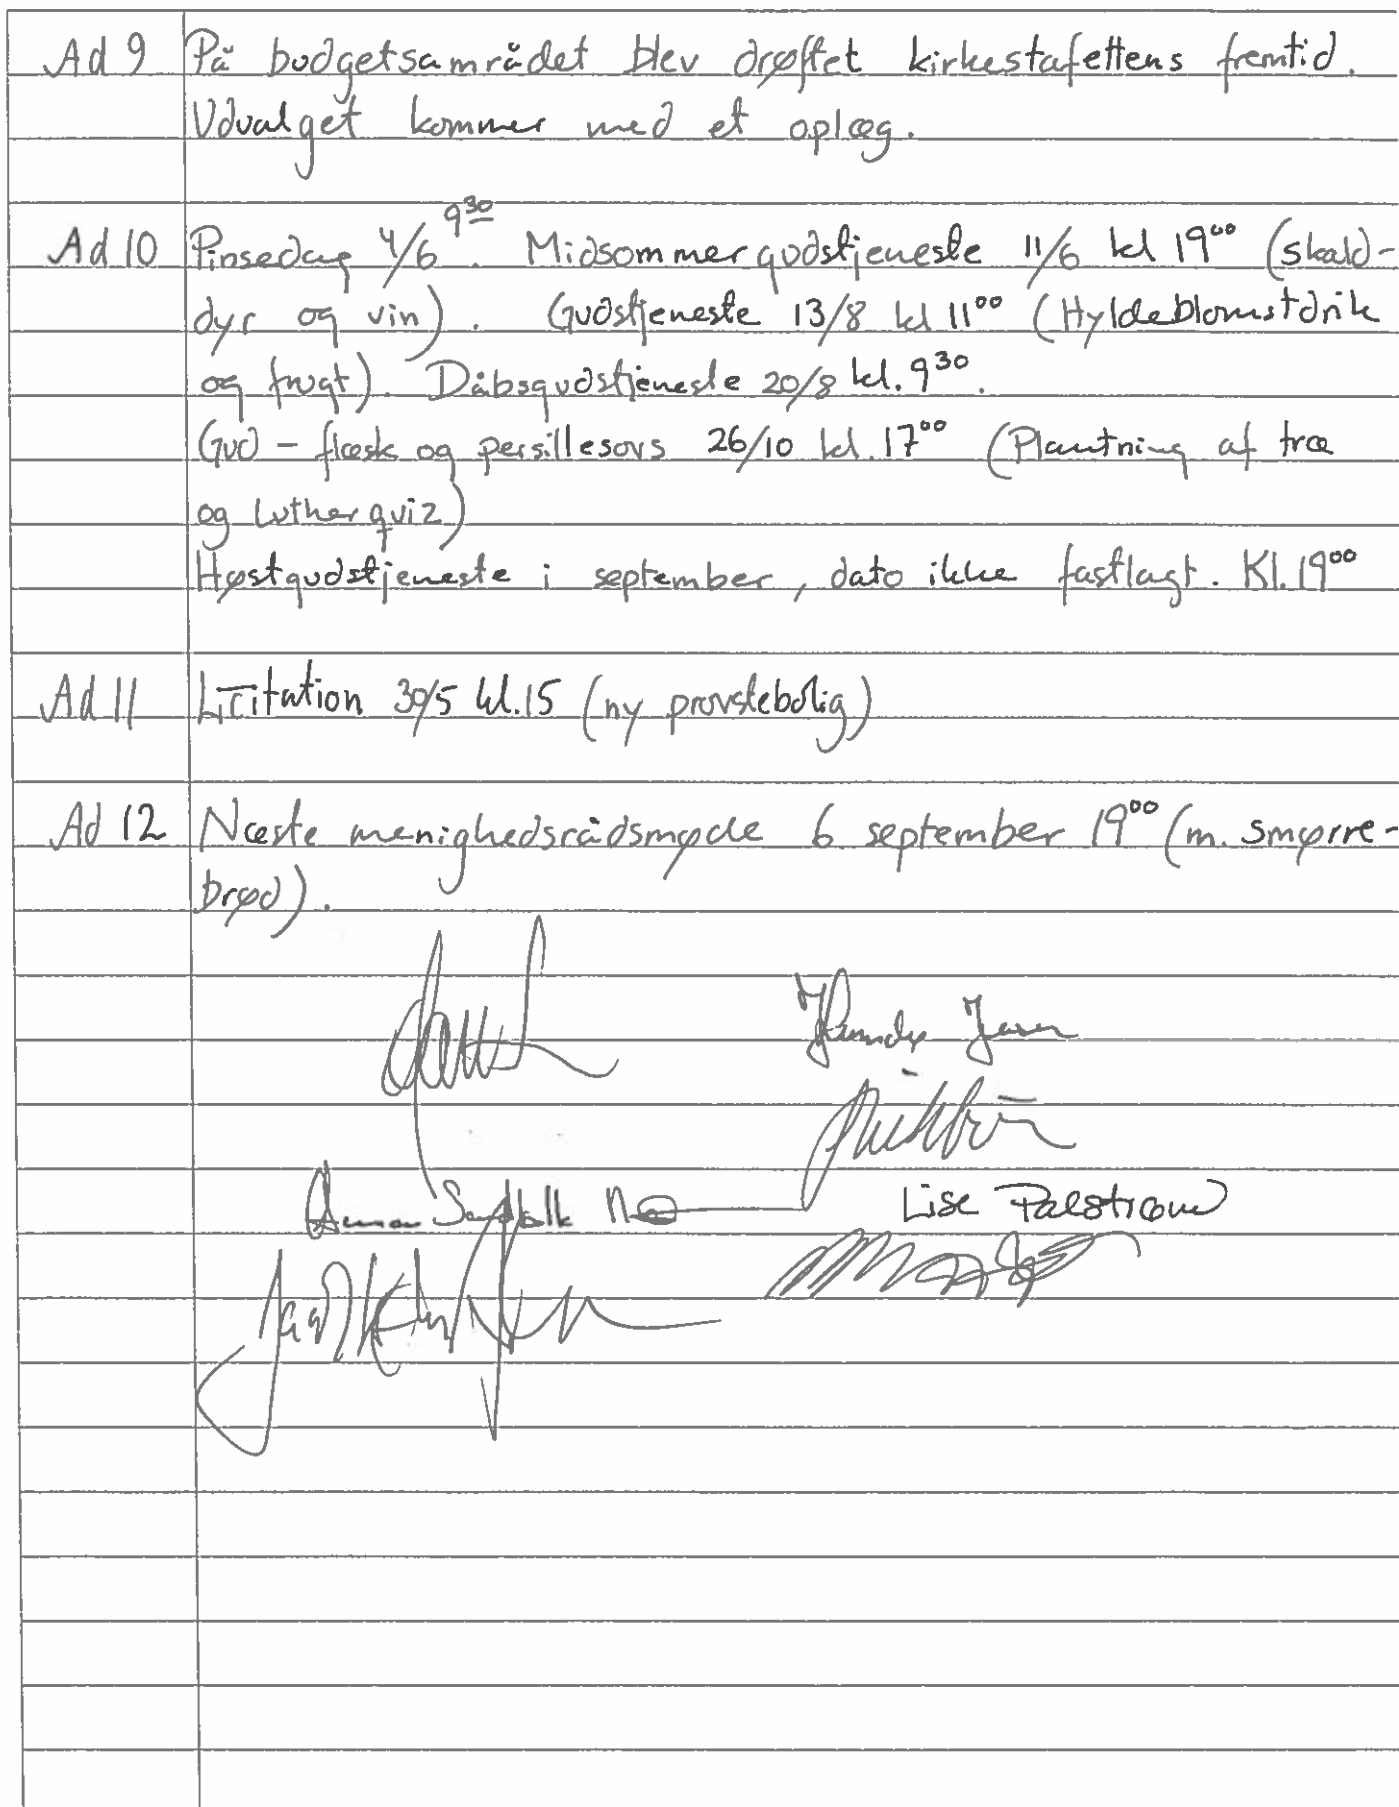 Ad 9 På budgetsamrådet blev drøftet kirkestafettens fremtid.
Udvalget kommer med et oplæg.
Ad 10 Pinsedag 4/6 9³⁰. Midsommergudstjeneste 11/6 kl 19⁰⁰ (skald-
dyr og vin). Gudstjeneste 13/8 kl 11⁰⁰ (Hyldeblomstdrik
og frugt). Dåbsgudstjeneste 20/8 kl. 9³⁰.
Gud - flæsk og persillesovs 26/10 kl. 17⁰⁰ (Plantning af træ
og Luther quiz)
Høstgudstjeneste i september, dato ikke fastlagt. Kl. 19⁰⁰
Ad 11 Licitation 30/5 kl. 15 (ny provstebolig)
Ad 12 Næste menighedsrådsmøde 6. september 19⁰⁰ (m. smørre-
brød).
Lise Palstrøm